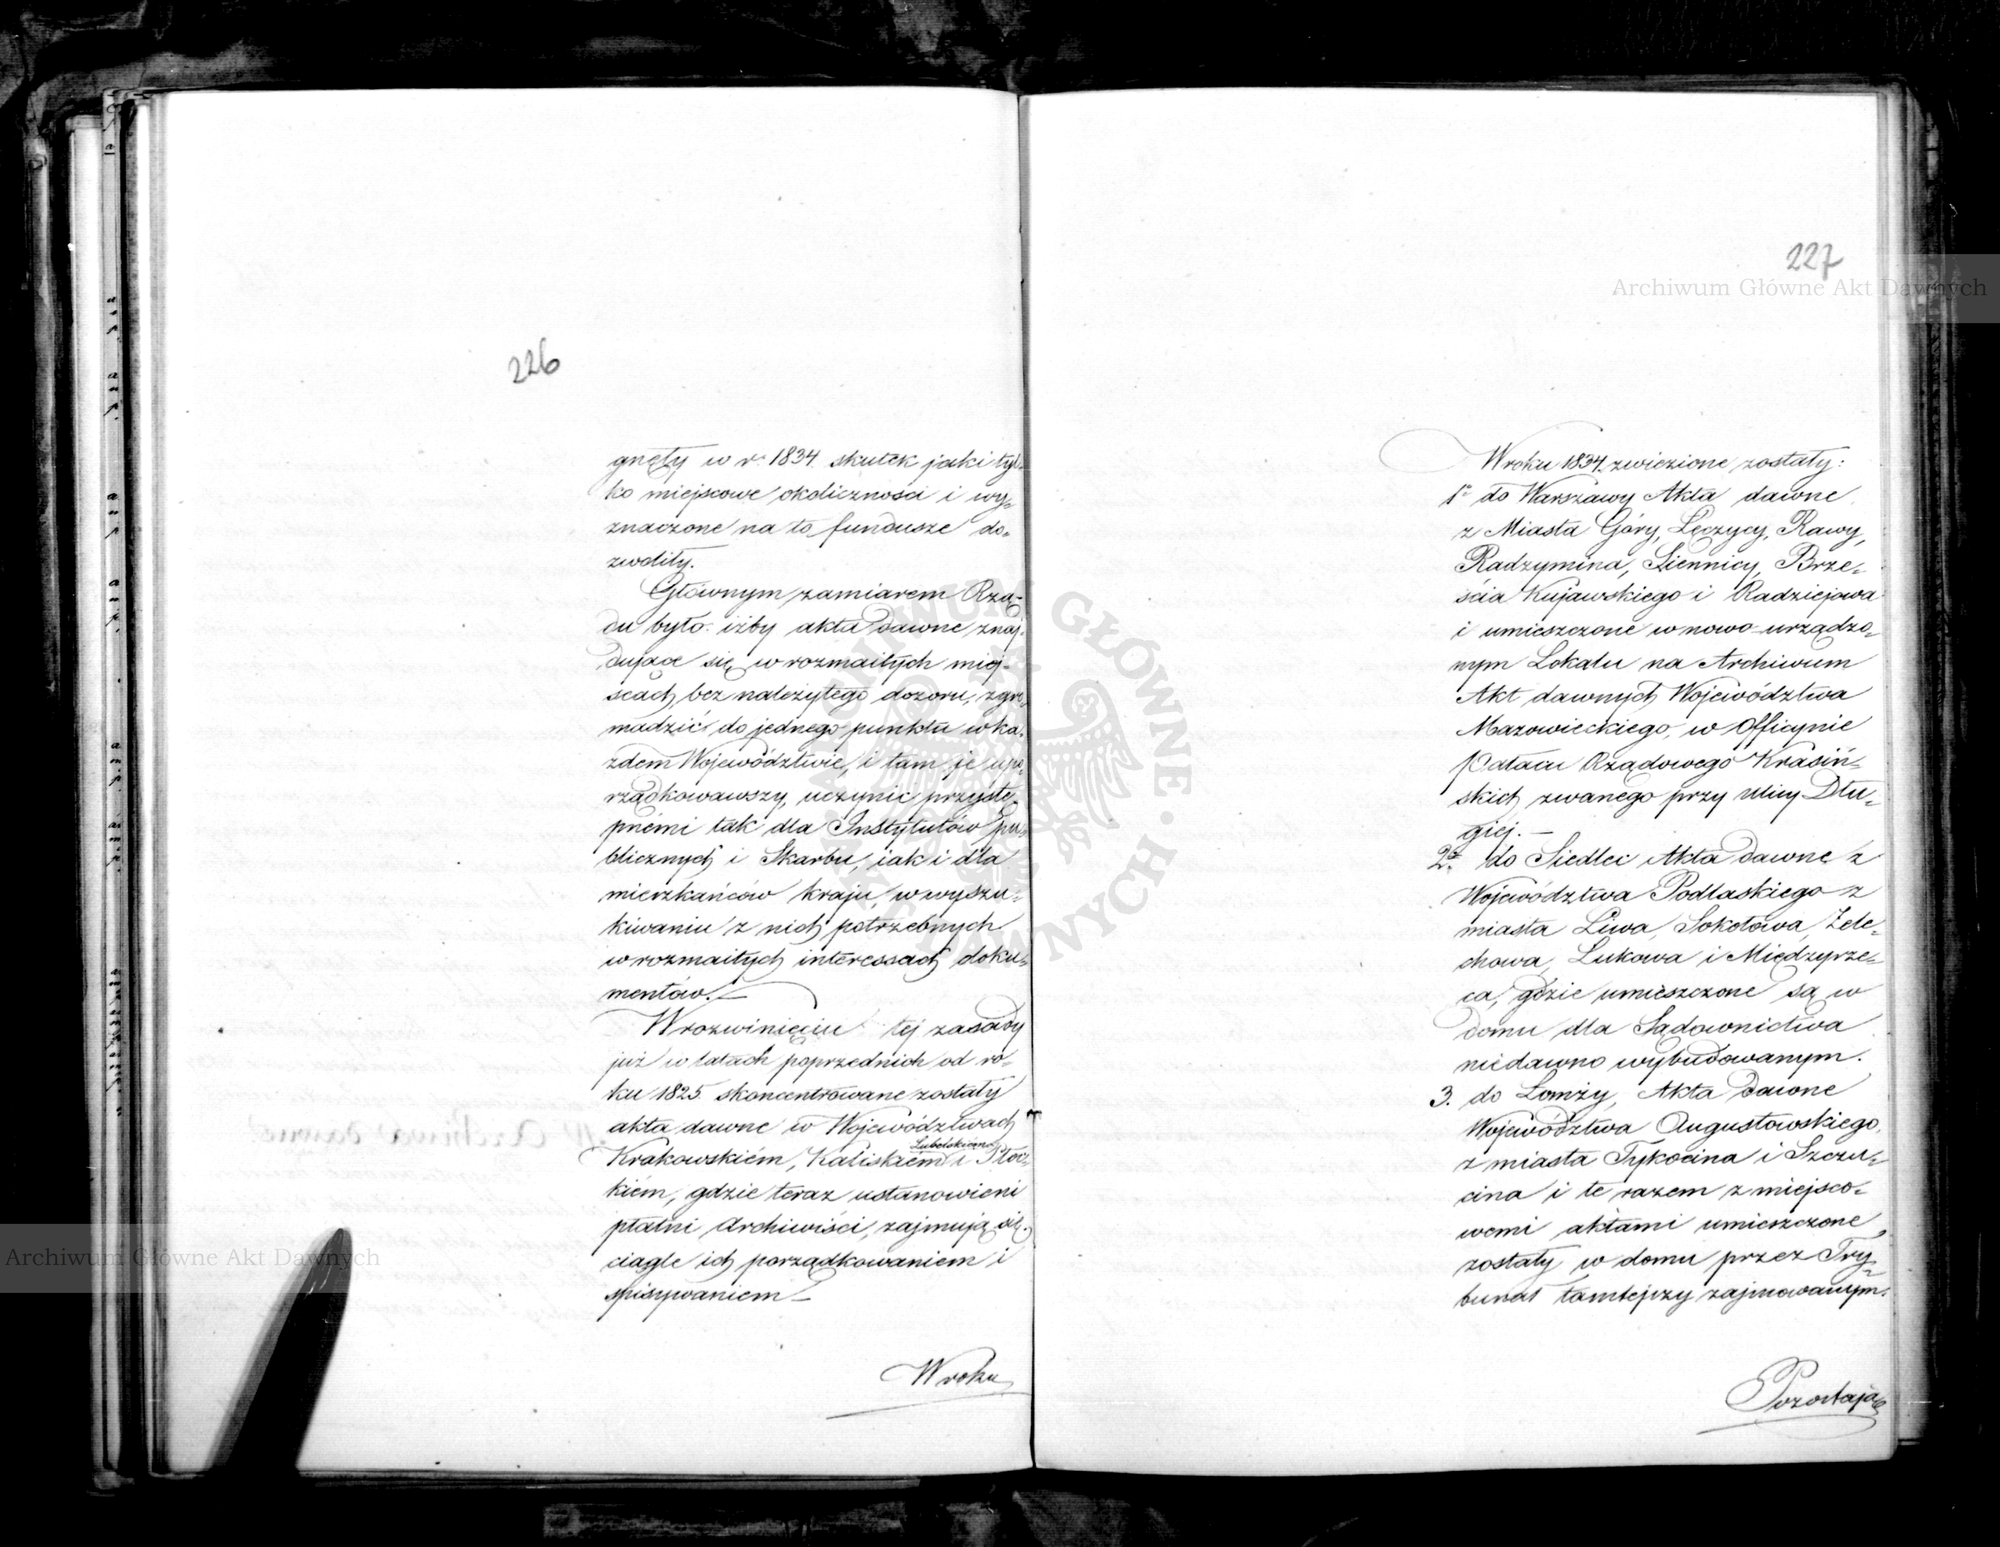 226
gnęły w r. 1834. skutek jaki tyl-
ko miejscowe okoliczności i wy-
znaczone na to fundusze do-
zwoliły.
Głównym zamiarem Rzą-
du było: iżby akta dawne znaj-
dujące się w rozmaitych miej-
scach, bez należytego dozoru, zgro-
madzić do jednego punktu w ka-
żdem Województwie, i tam je upo-
rządkowawszy, uczynić przystę-
pnémi tak dla Instytutów pu-
blicznych i Skarbu, iak i dla
mieszkańców kraju, w wyszu-
kiwaniu z nich potrzebnych
w rozmaitych interessach doku-
mentów.—
W rozwinięciu tej zasady
już w latach poprzednich od ro-
ku 1825. skoncentrowane zostały
akta dawne w Województwach
Lubelskiém
Krakowskiém, Kaliskiém i Płoc-
kiém, gdzie teraz ustanowieni
płatni Archiwiści, zajmują się
ciągle ich porządkowaniem i
spisywaniem—
W roku
227
W roku 1834. zwiezione zostały:
1o do Warszawy Akta dawne
z Miasta Góry, Łęczycy, Rawy,
Radzymina, Siennicy, Brze-
ścia Kujawskiego i Radziejowa
i umieszczone w nowo urządzo-
nym Lokalu na Archiwum
Akt dawnych Województwa
Mazowieckiego, w Officynie
Pałacu Rządowego Krasiń-
skich zwanego przy ulicy Dłu-
giej.—
2o. do Siedlec Akta dawne z
Województwa Podlaskiego z
miasta Liwa, Sokołowa, Żele-
chowa, Łukowa i Międzyrze-
ca, gdzie umieszczone są w
domu dla Sądownictwa
niedawno wybudowanym.
3. do Łomży, Akta dawne
Województwa Augustowskiego,
z miasta Tykocina i Szczu-
cina i te razem z miejsco-
wemi aktami umieszczone
zostały w domu przez Try-
bunał tamtejszy zajmowanym.
Pozostają
Archiwum Główne Akt Dawnych
Archiwum Główne Akt Dawnych
ARCHIWUM GŁÓWNE AKT DAWNYCH